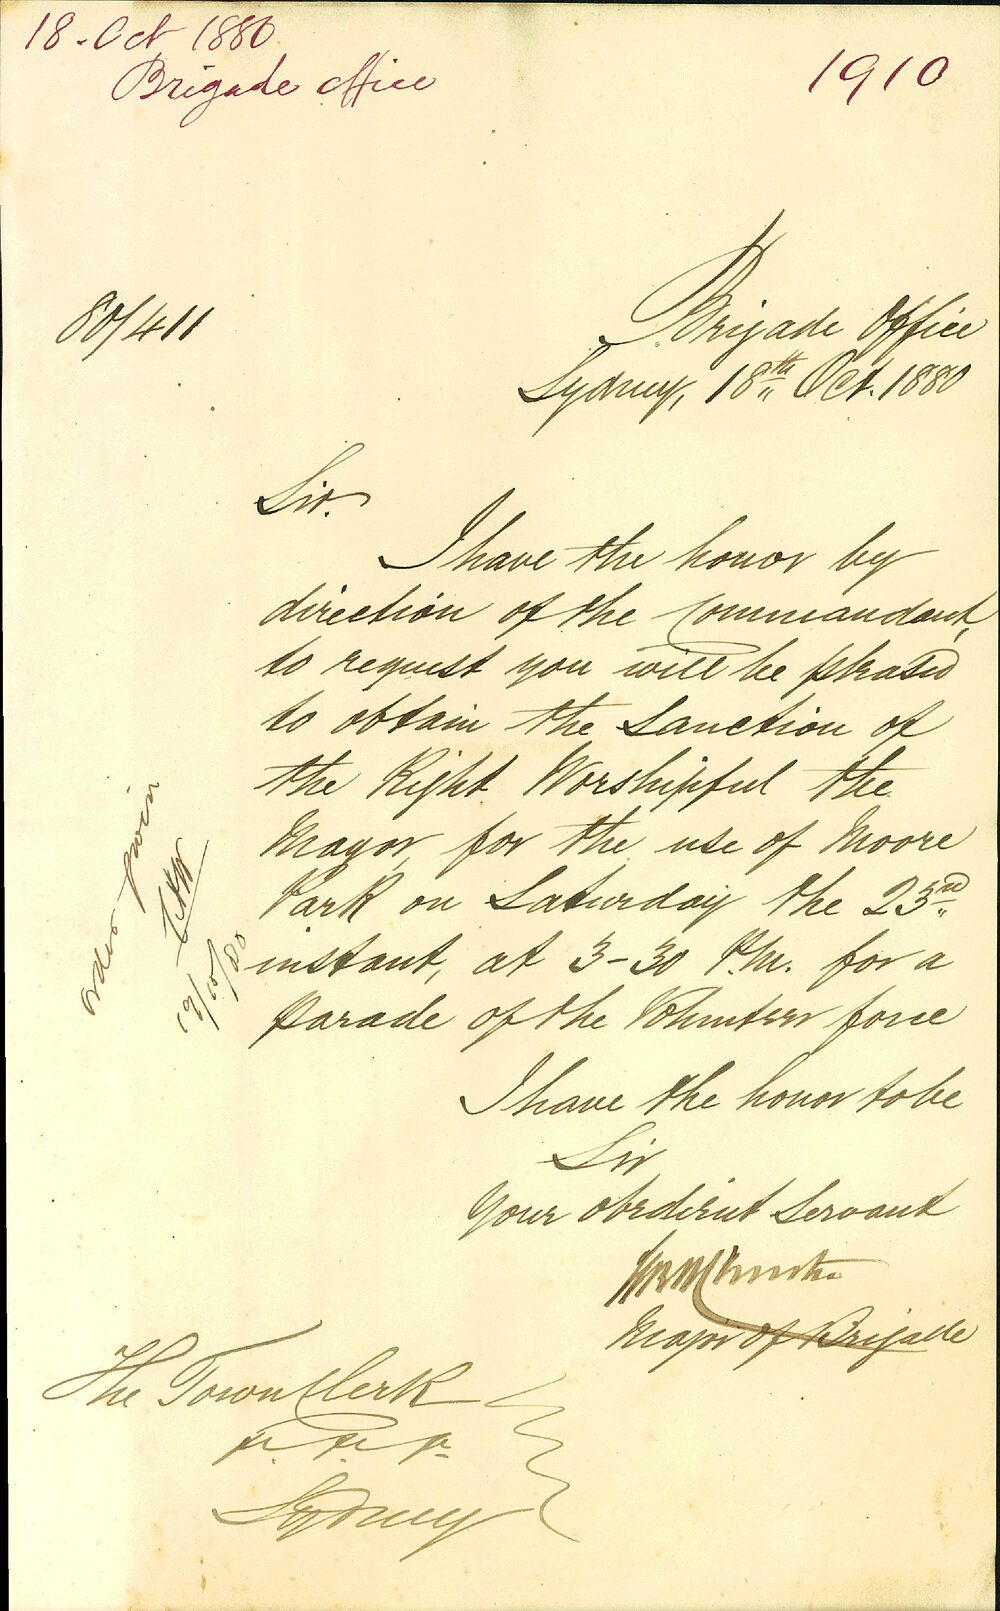 18. Oct 1880
Brigade Office
1910
80/411
Brigade Office
Sydney, 18th Oct. 1880
Sir.
I have the honor by
direction of the Commandant,
to request you will be pleased
to obtain the Sanction of
the Right Worshipful the
Mayor for the use of Moore
Park on Saturday the 23rd
instant, at 3-30 P.M. for a
parade of the Volunteer force
I have the honor to be
Sir
Your obedient Servant
Major of Brigade
The Town Clerk
&c. &c. &c.
Sydney
order given
19/10/80